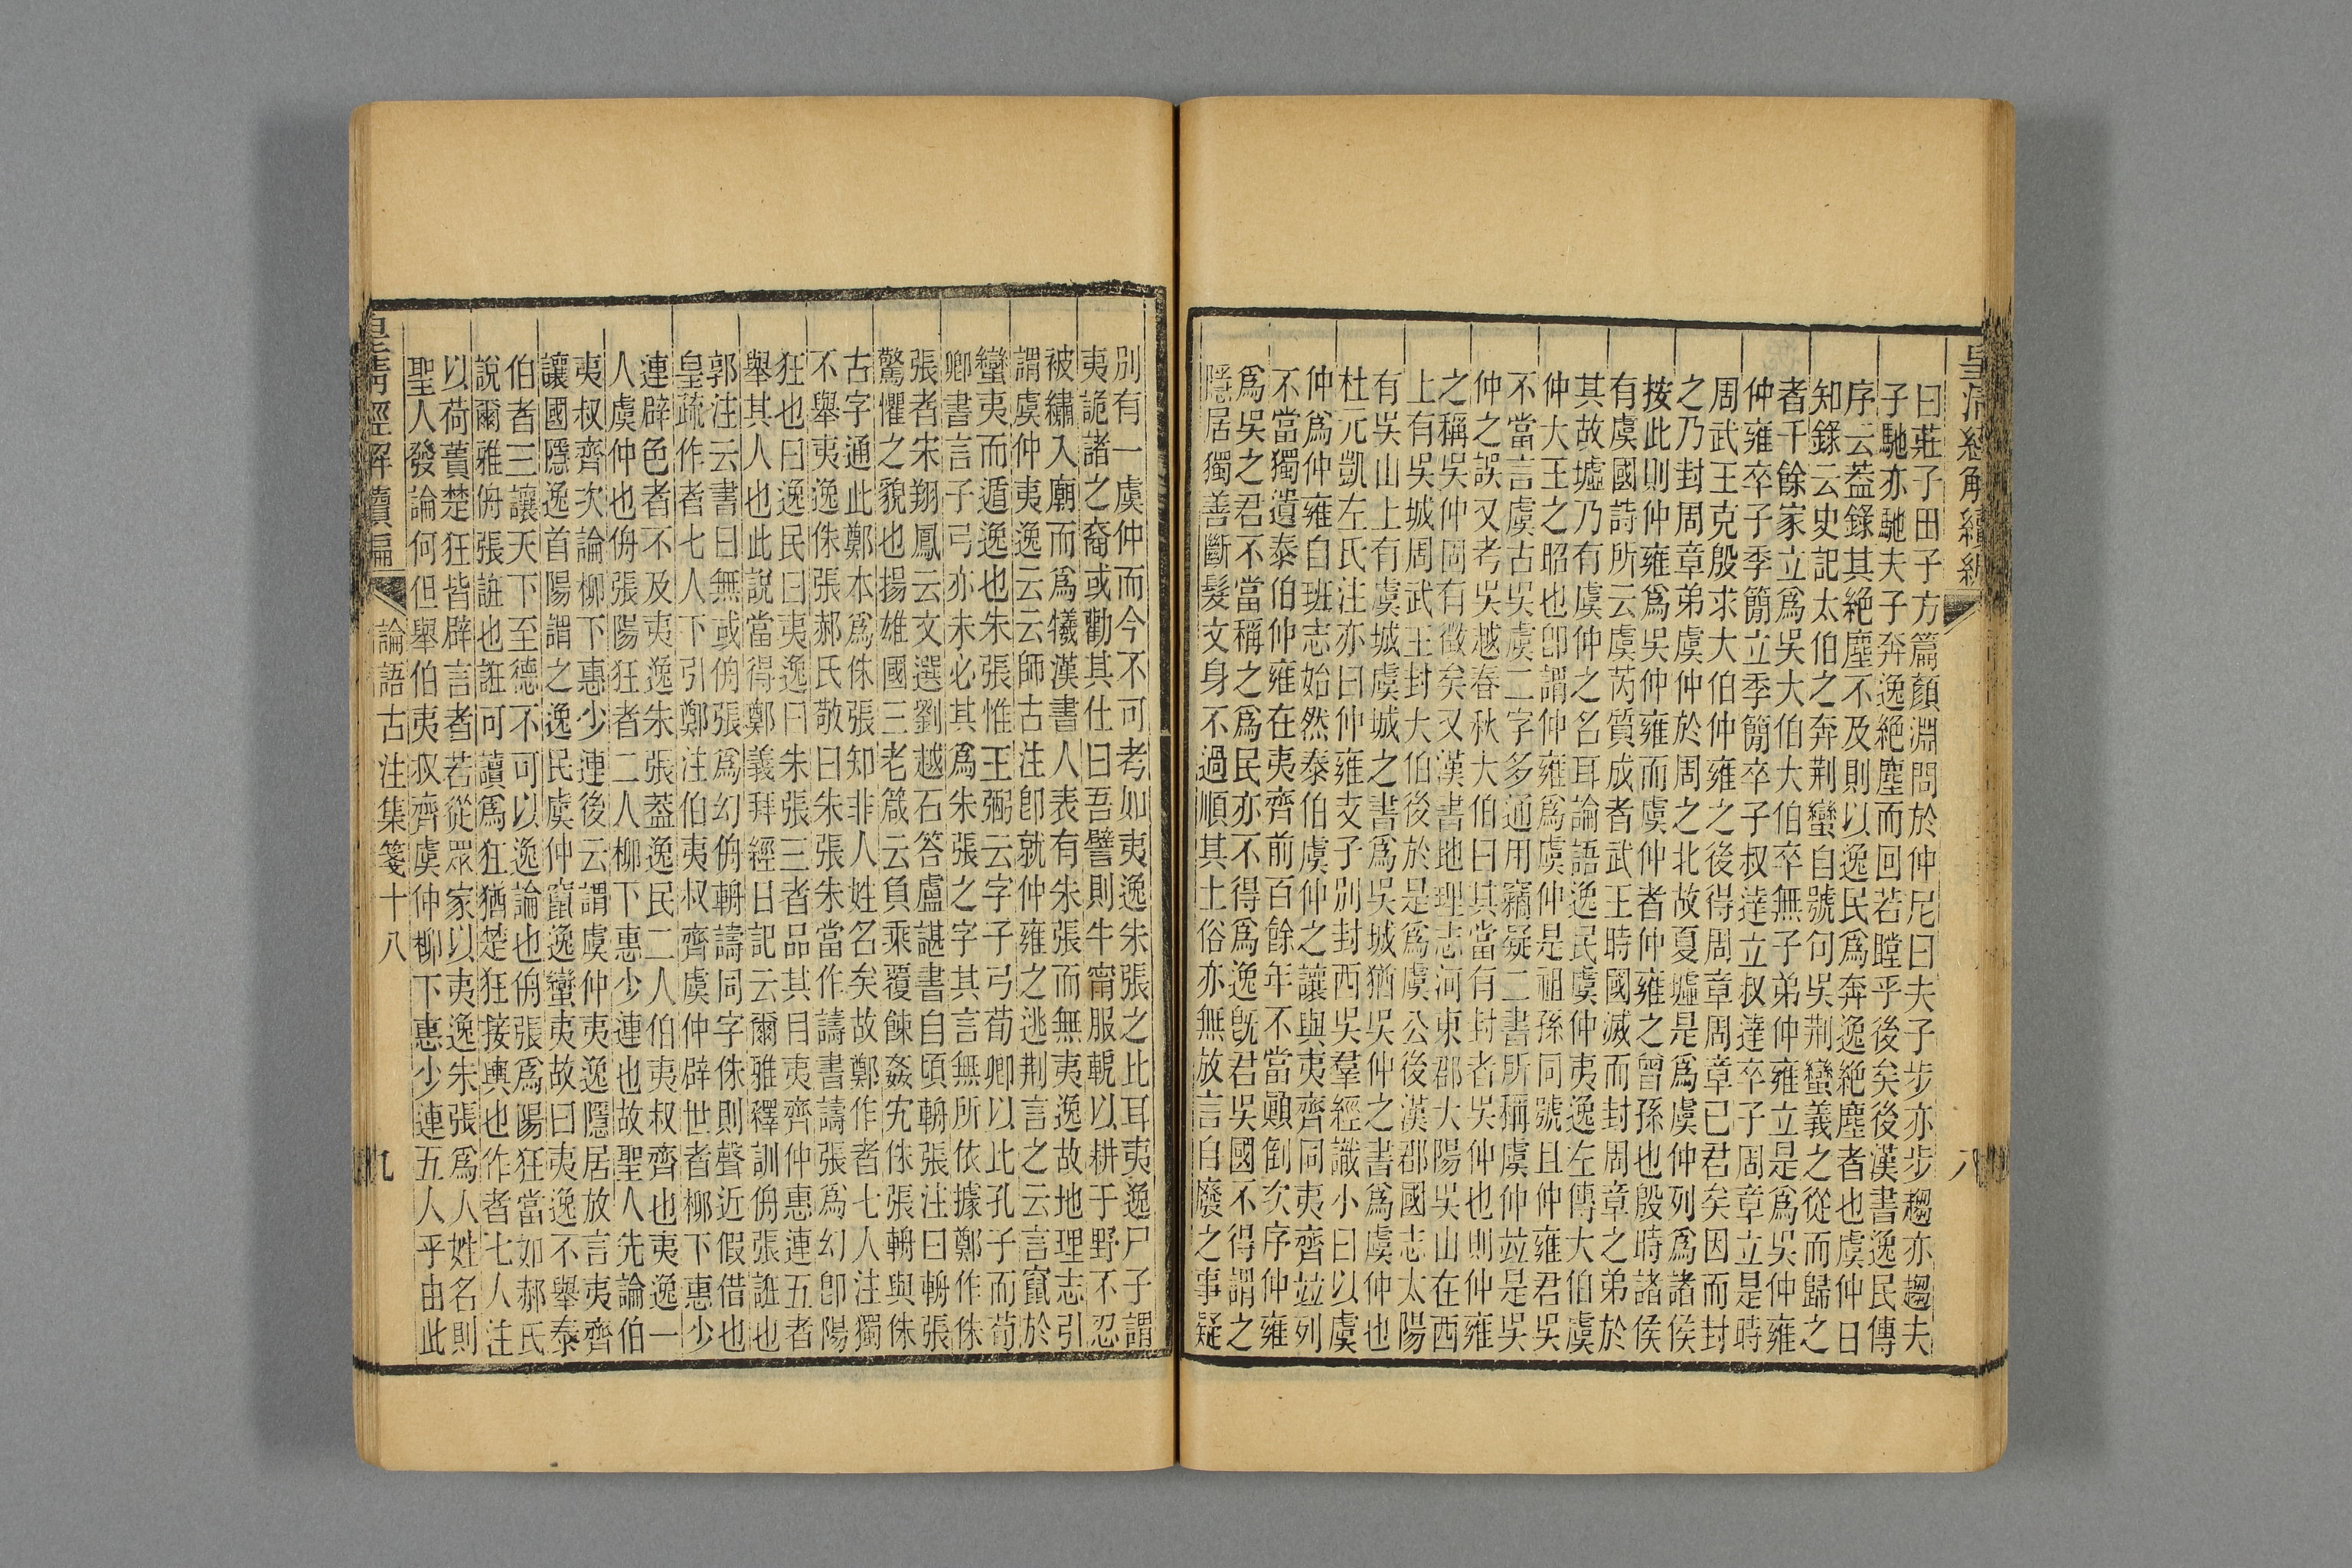 皇清經解續編
八
曰莊子田子方篇顏淵問於仲尼曰夫子步亦步趨亦趨夫
子馳亦馳夫子奔逸絕塵而回若瞠乎後矣後漢書逸民傳
序云葢錄其絕塵不及則以逸民爲奔逸絕塵者也虞仲日
知錄云史記太伯之奔荆蠻自號句吳荆蠻義之從而歸之
者千餘家立爲吳大伯大伯卒無子弟仲雍立是爲吳仲雍
仲雍卒子季簡立季簡卒子叔達立叔達卒子周章立是時
周武王克殷求大伯仲雍之後得周章周章已君矣因而封
之乃封周章弟虞仲於周之北故夏墟是爲虞仲列爲諸侯
按此則仲雍爲吳仲雍而虞仲者仲雍之曾孫也殷時諸侯
有虞國詩所云虞芮質成者武王時國滅而封周章之弟於
其故墟乃有虞仲之名耳論語逸民虞仲夷逸左傳大伯虞
仲大王之昭也卽謂仲雍爲虞仲是祖孫同號且仲雍君吳
不當言虞古吳虞二字多通用竊疑二書所稱虞仲竝是吳
仲之誤又考吳越春秋大伯曰其當有封者吳仲也則仲雍
之稱吳仲固有徵矣又漢書地理志河東郡大陽吳山在西
上有吳城周武王封大伯後於是爲虞公後漢郡國志太陽
有吳山上有虞城虞城之書爲吳城猶吳仲之書爲虞仲也
杜元凱左氏注亦曰仲雍支子別封西吳羣經識小曰以虞
仲爲仲雍自班志始然泰伯虞仲之讓與夷齊同夷齊竝列
不當獨遺泰伯仲雍在夷齊前百餘年不當顚倒次序仲雍
爲吳之君不當稱之爲民亦不得爲逸旣君吳國不得謂之
隱居獨善斷髮文身不過順其土俗亦無放言自廢之事疑
別有一虞仲而今不可考如夷逸朱張之比耳夷逸尸子謂
夷詭諸之裔或勸其仕曰吾譬則牛甯服軛以耕于野不忍
被繡入廟而爲犧漢書人表有朱張而無夷逸故地理志引
謂虞仲夷逸云云師古注卽就仲雍之逃荆言之云言竄於
蠻夷而遁逸也朱張惟王弼云字子弓荀卿以此孔子而荀
卿書言子弓亦未必其爲朱張之字其言無所依據鄭作侏
張者宋翔鳳云文選劉越石答盧諶書自頃輈張注曰輈張
驚懼之貌也揚雄國三老箴云負乘覆餗姦宄侏張輈與侏
古字通此鄭本為侏張知非人姓名矣故鄭作者七人注獨
不舉夷逸侏張郝氏敬曰朱張朱當作譸書譸張爲幻卽陽
狂也曰逸民曰夷逸曰朱張三者品其目夷齊仲惠連五者
舉其人也此說當得鄭義拜經日記云爾雅釋訓侜張誑也
郭注云書曰無或侜張爲幻侜輈譸同字侏則聲近假借也
皇疏作者七人下引鄭注伯夷叔齊虞仲辟世者柳下惠少
連辟色者不及夷逸朱張葢逸民二人伯夷叔齊也夷逸一
人虞仲也侜張陽狂者二人柳下惠少連也故聖人先論伯
夷叔齊次論柳下惠少連後云謂虞仲夷逸隱居放言夷齊
讓國隱逸首陽謂之逸民虞仲竄逸蠻夷故曰夷逸不舉泰
伯者三讓天下至德不可以逸論也侜張爲陽狂當如郝氏
說爾雅侜張誑也誑可讀爲狂猶楚狂接輿也作者七人注
以荷蕢楚狂皆辟言者若從眾家以夷逸朱張爲人姓名則
聖人發論何但舉伯夷叔齊虞仲柳下惠少連五人乎由此
皇清經解續編
論語古注集箋十八
九